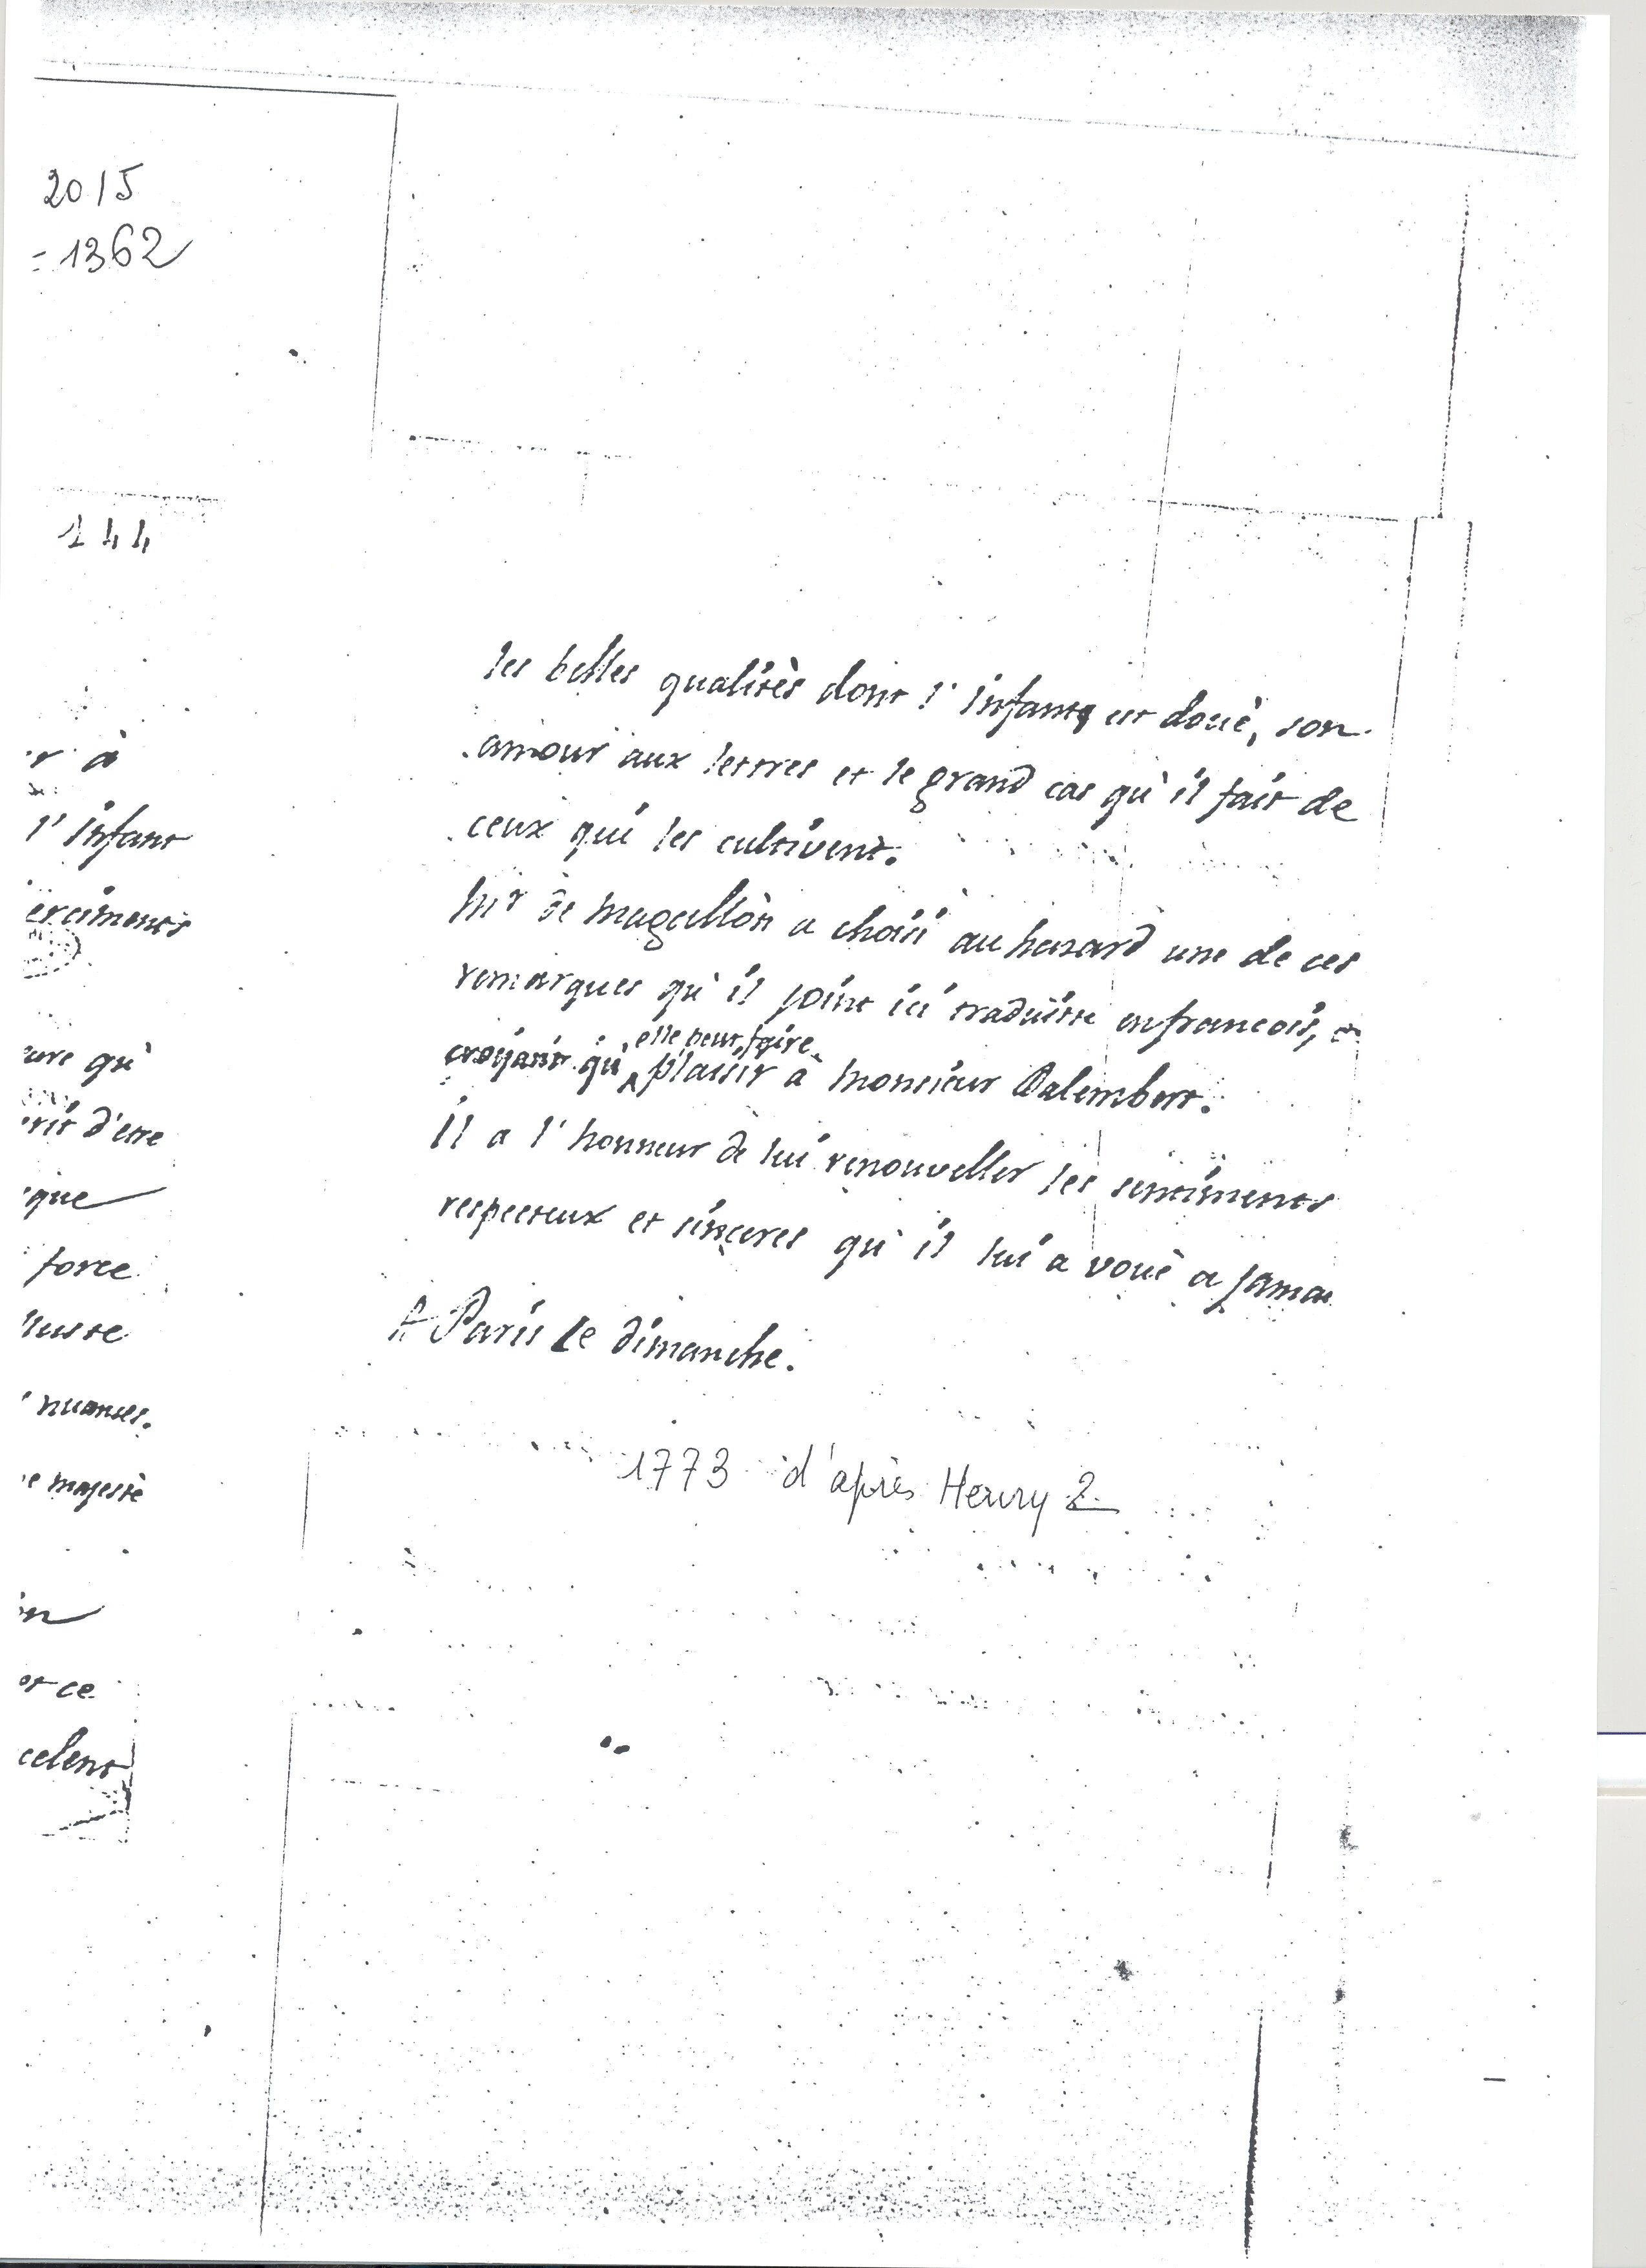 2015
= 1362
144
r à
l'infant
erciments
ure qu'
rit d'etre
que
force
nuances.
e majestè
in
et ce
celent
les belles qualitès dont l'infant est douè, son
amour aux lettres et le grand cas qu'il fait de
ceux qui les cultivent.
Mr de magallòn a choisi au hazard une de ces
remarques qu'il joint ici traduitte en francois,
elle peut faire
croyant qu' plaisir à monsieur Dalembert.
Il a l'honneur de lui renouveller les sentiments
respecteux et sinceres qu'il lui a vouè a jamai
A Paris le dimanche.
1773 d'après Henry 2